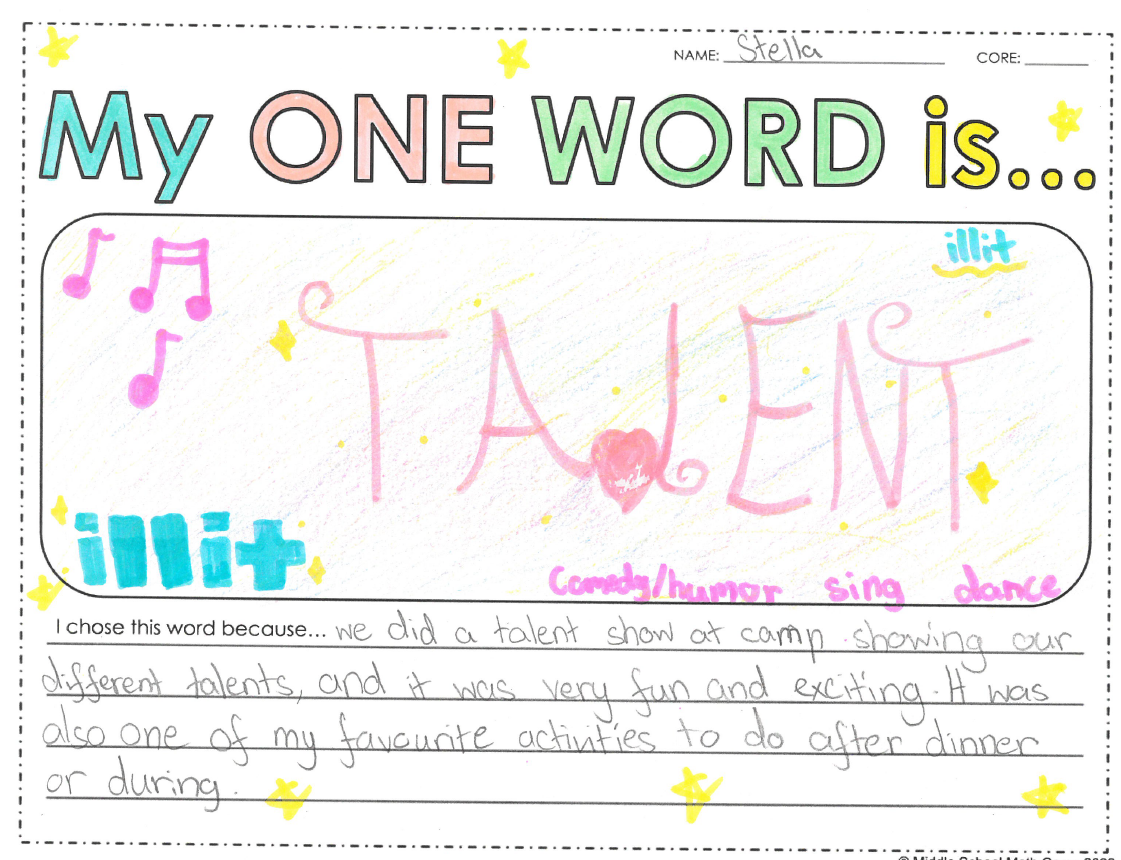 NAME: Stella CORE:
My ONE WORD is...
illit
TALENT
illit
Comedy/humor sing dance
I chose this word because... we did a talent show at camp showing our
different talents, and it was very fun and exciting. It was
also one of my favourite activities to do after dinner
or during.